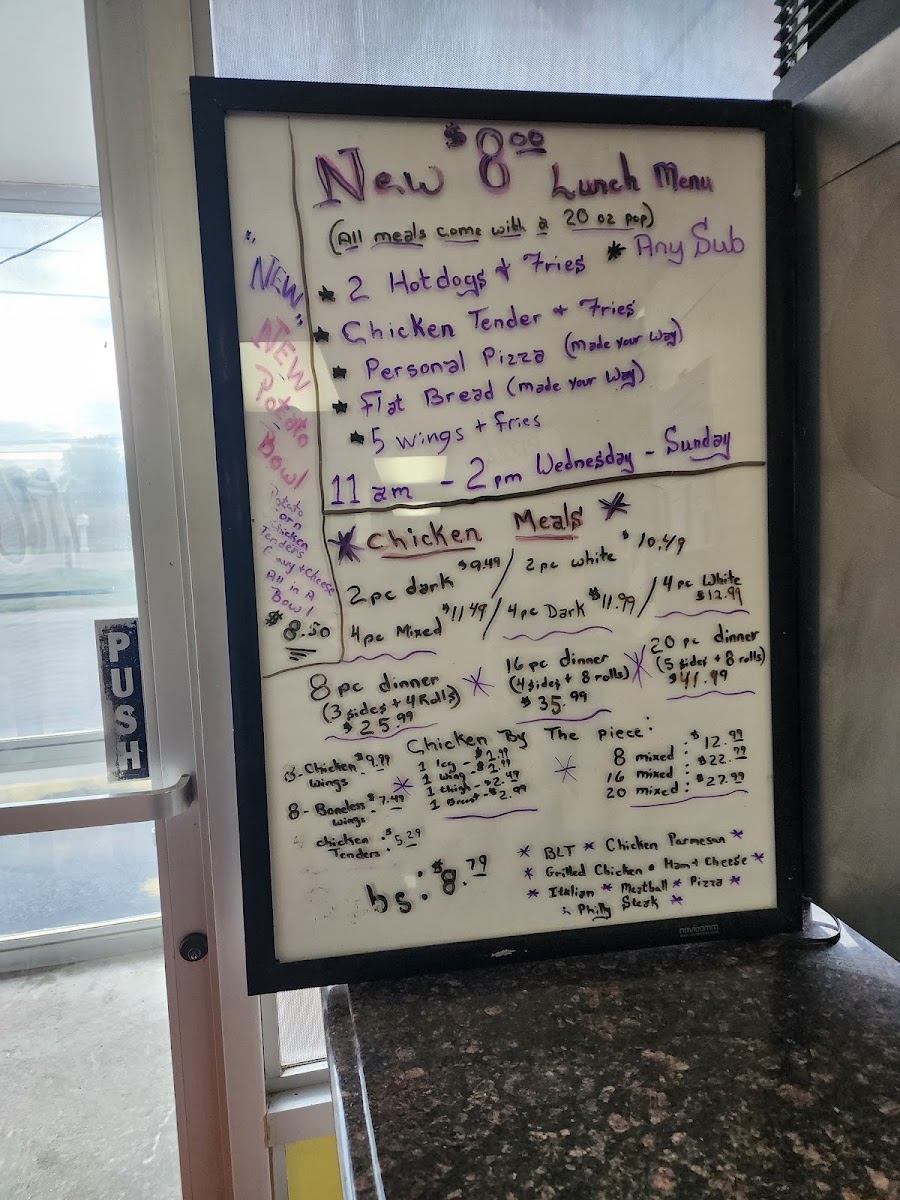 New $8.00 Lunch Menu
(All meals come with a 20 oz pop)
* 2 Hotdogs + Fries * Any Sub
* Chicken Tender + Fries
* Personal Pizza (made your way)
* Flat Bread (made your way)
* 5 wings + fries
11 am - 2pm Wednesday - Sunday
"NEW"
NEW
Potato
Bowl
Potato
Corn
Chicken
Tenders
+ Cheese
All in A
Bowl
$8.50
* Chicken Meals *
2 pc dark $9.49 / 2 pc white $10.49
4 pc Mixed $11.49 / 4 pc Dark $11.99 / 4 pc White $12.99
8 pc dinner
(3 sides + 4 Rolls)
$25.99
16 pc dinner
(4 sides + 8 rolls)
$35.99
20 pc dinner
(5 sides + 8 rolls)
$41.99
Chicken By The piece:
Chicken wings
8- Boneless wings $7.49
chicken Tenders: $5.29
1 leg -
1 wing -
1 thigh - $2.49
1 Breast - $2.99
8 mixed: $12.99
16 mixed:
20 mixed: $27.99
bs: $8.79
* BLT * Chicken Parmesan *
* Grilled Chicken * Ham + Cheese *
* Italian * Meatball * Pizza *
Philly Steak *
navicomm
PUSH